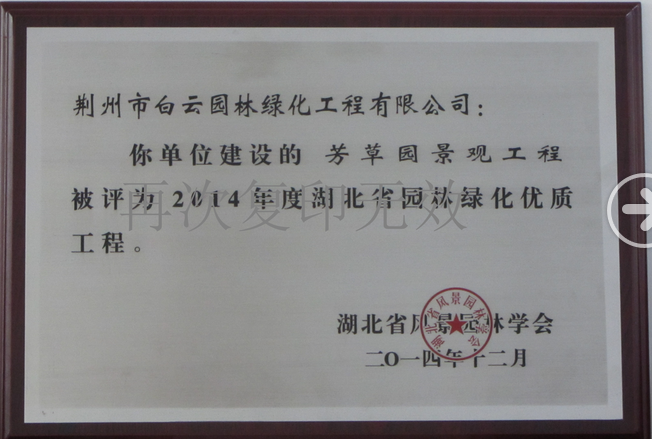 荆州市白云园林绿化工程有限公司：
你单位建设的 芳草园景观工程
被评为2014年度湖北省园林绿化优质
工程。
再次复印无效
湖北省风景园林学会
湖北省风景园林学会
二〇一四年十二月